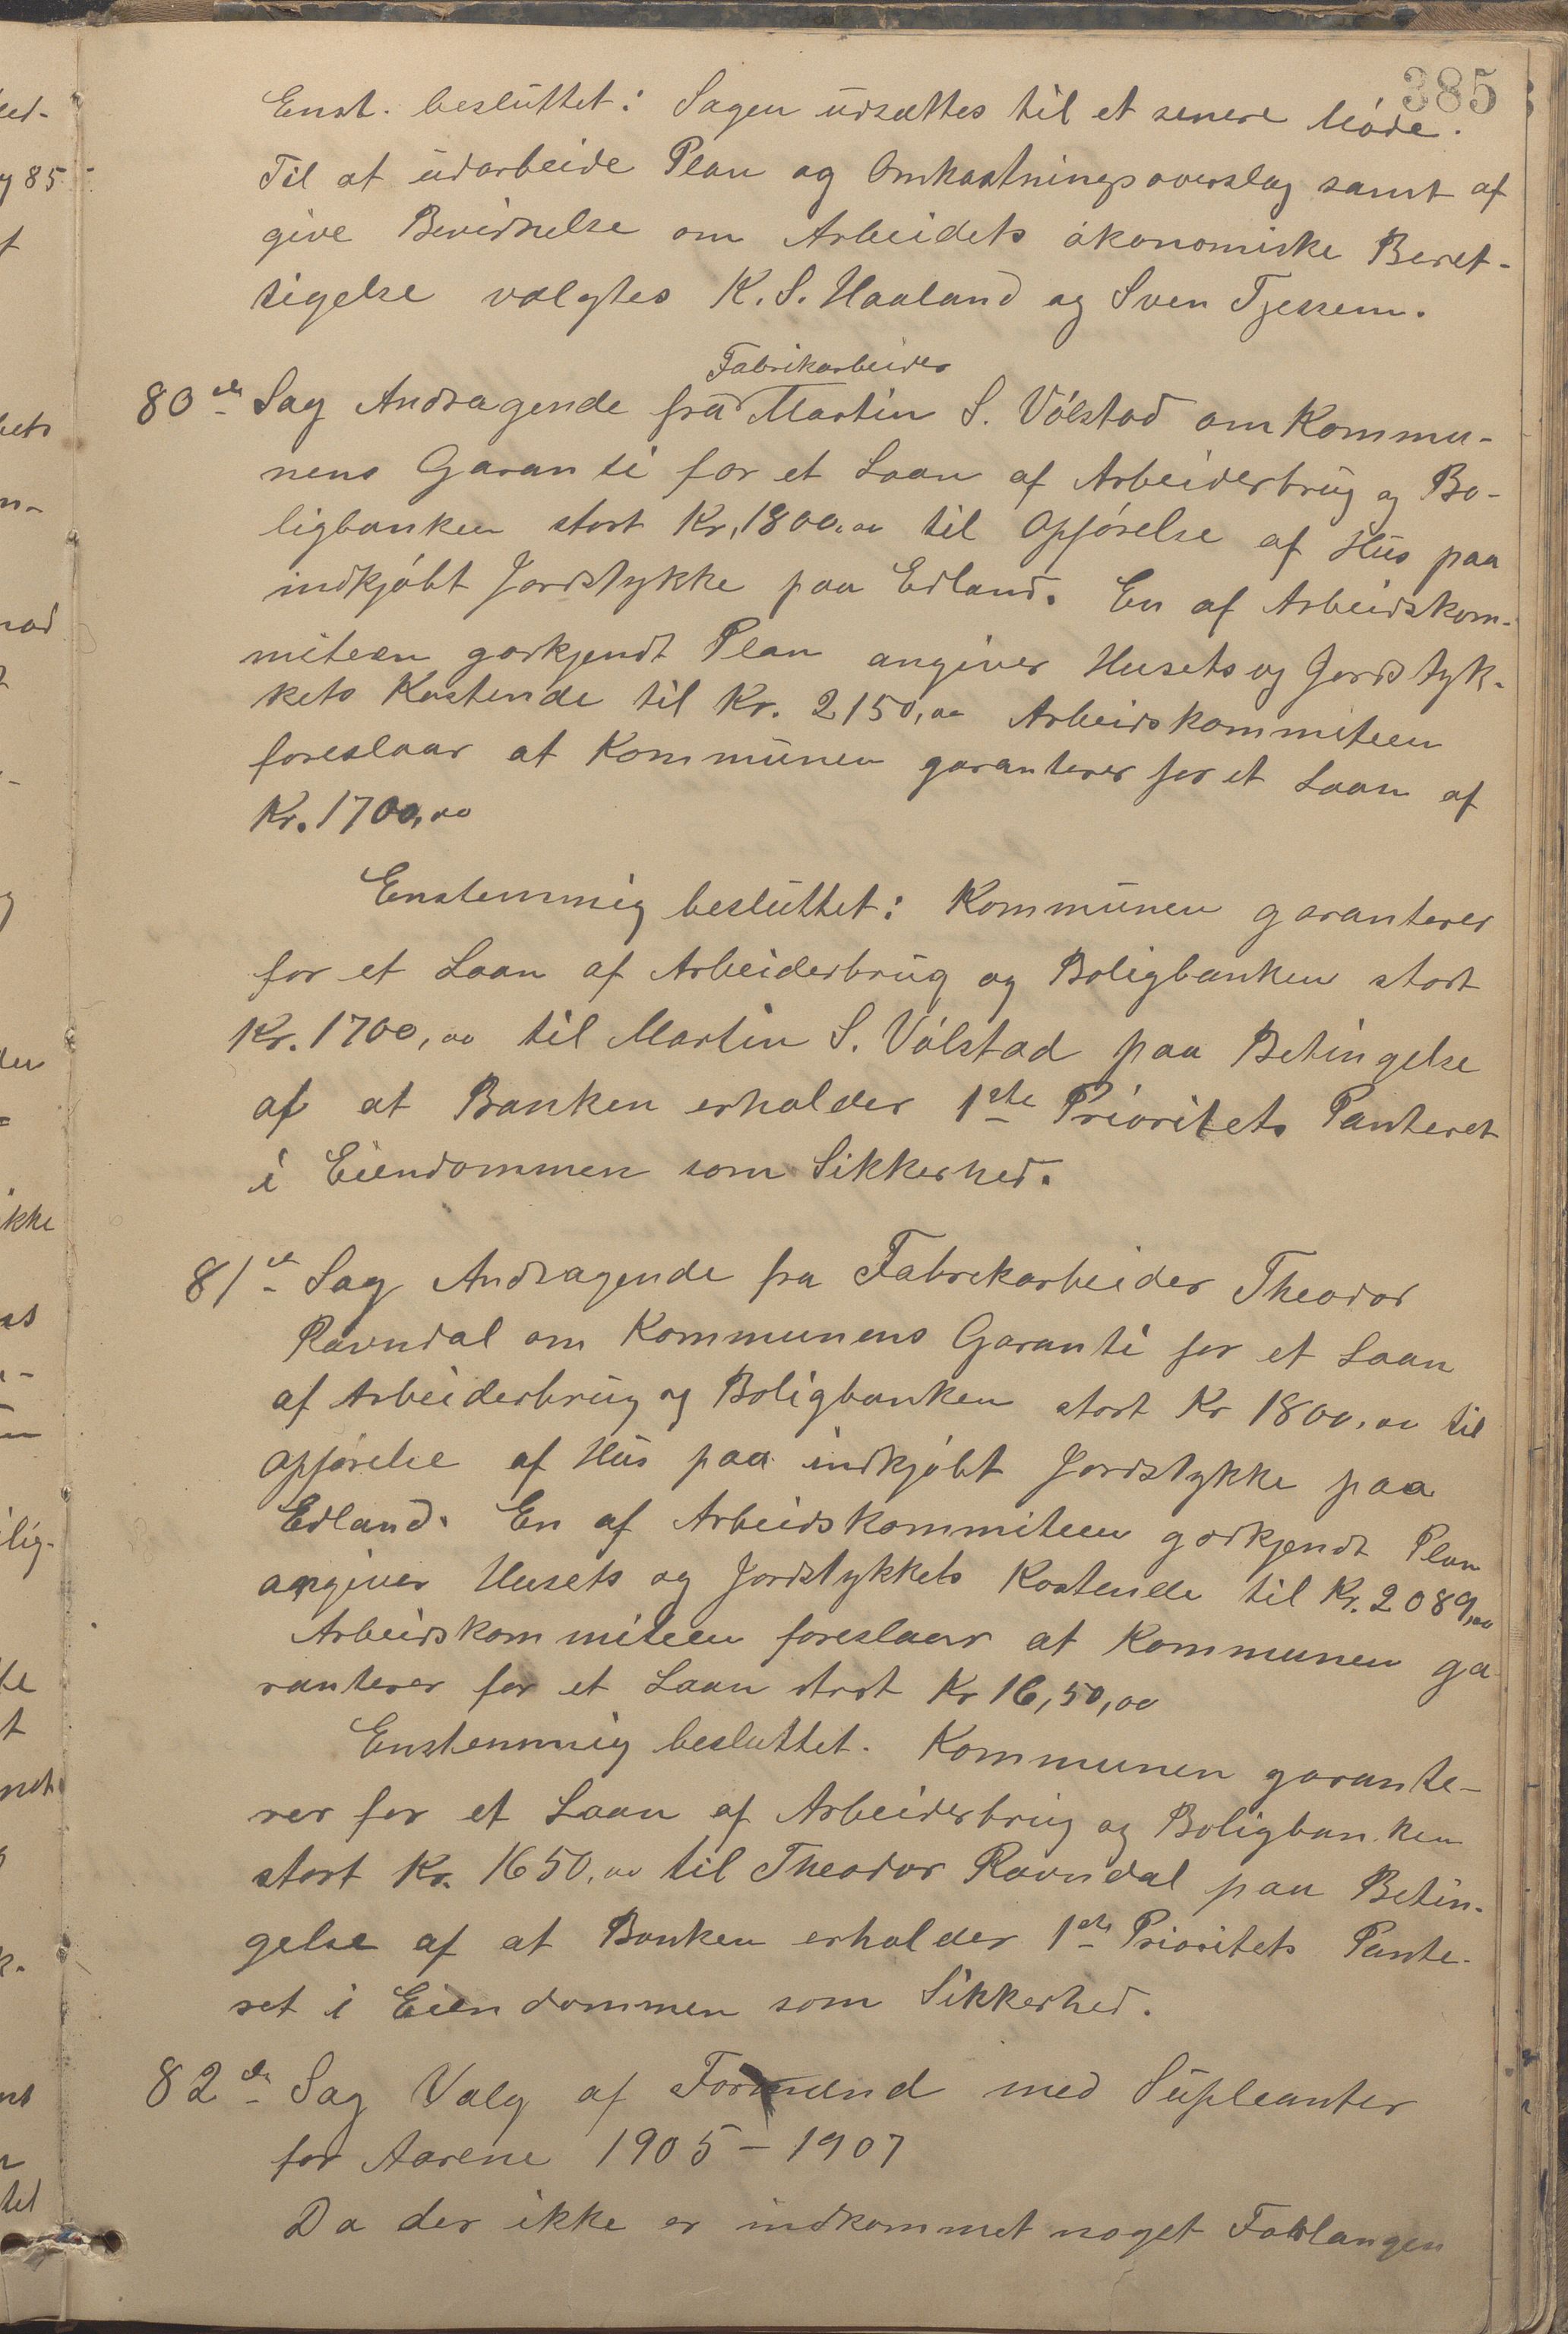 385
Enst. besluttet: Sagen udsættes til et senere Møde.
Til at udarbeide Plan og Omkostningsoverslag samt af
give Bevidnelse om Arbeidets økonomiske Beret-
tigelse valgtes K. S. Haaland og Sven Tjessem.
Fabrikarbeider
80de Sag Andragende fra Martin S. Vølstad om Kommu-
nens Garanti for et Laan af Arbeiderbrug og Bo-
ligbanken stort Kr. 1800,00 til Opførelse af Hus paa
indkjøbt Jordstykke paa Edland. En af Arbeidskom-
miteen godkjendt Plan angiver Husets og Jordstyk-
kets Kostende til Kr. 2150,00 Arbeidskommiteen
foreslaar at Kommunen garanterer for et Laan af
Kr. 1700,00
Enstemmig besluttet: Kommunen garanterer
for et Laan af Arbeiderbrug og Boligbanken stort
Kr. 1700,00 til Martin S. Vølstad paa Betingelse
af at Banken erholder 1ste Prioritets Panteret
i Eiendommen som Sikkerhed.
81de Sag Andragende fra Fabrikarbeider Theodor
Ravndal om Kommunens Garanti for et Laan
af Arbeiderbrug og Boligbanken stort Kr 1800,00 til
Opførelse af Hus paa indkjøbt Jordstykke paa
Edland. En af Arbeidskommiteen godkjendt Plan
angiver Husets og Jordstykkets Kostende til Kr. 2089,00
Arbeidskommiteen foreslaar at Kommunen ga
ranterer for et Laan stort Kr 16,50,00
Enstemmig besluttet. Kommunen garante-
rer for et Laan af Arbeiderbrug og Boligbanken
stort Kr. 1650,00 til Theodor Ravndal paa Betin-
gelse af at Banken erholder 1ste Prioritets Pante-
ret i Eiendommen som Sikkerhed.
82de Sag Valg af Formænd med Supleanter
for Aarene 1905-1907
Da der ikke er indkommet noget Forlangen